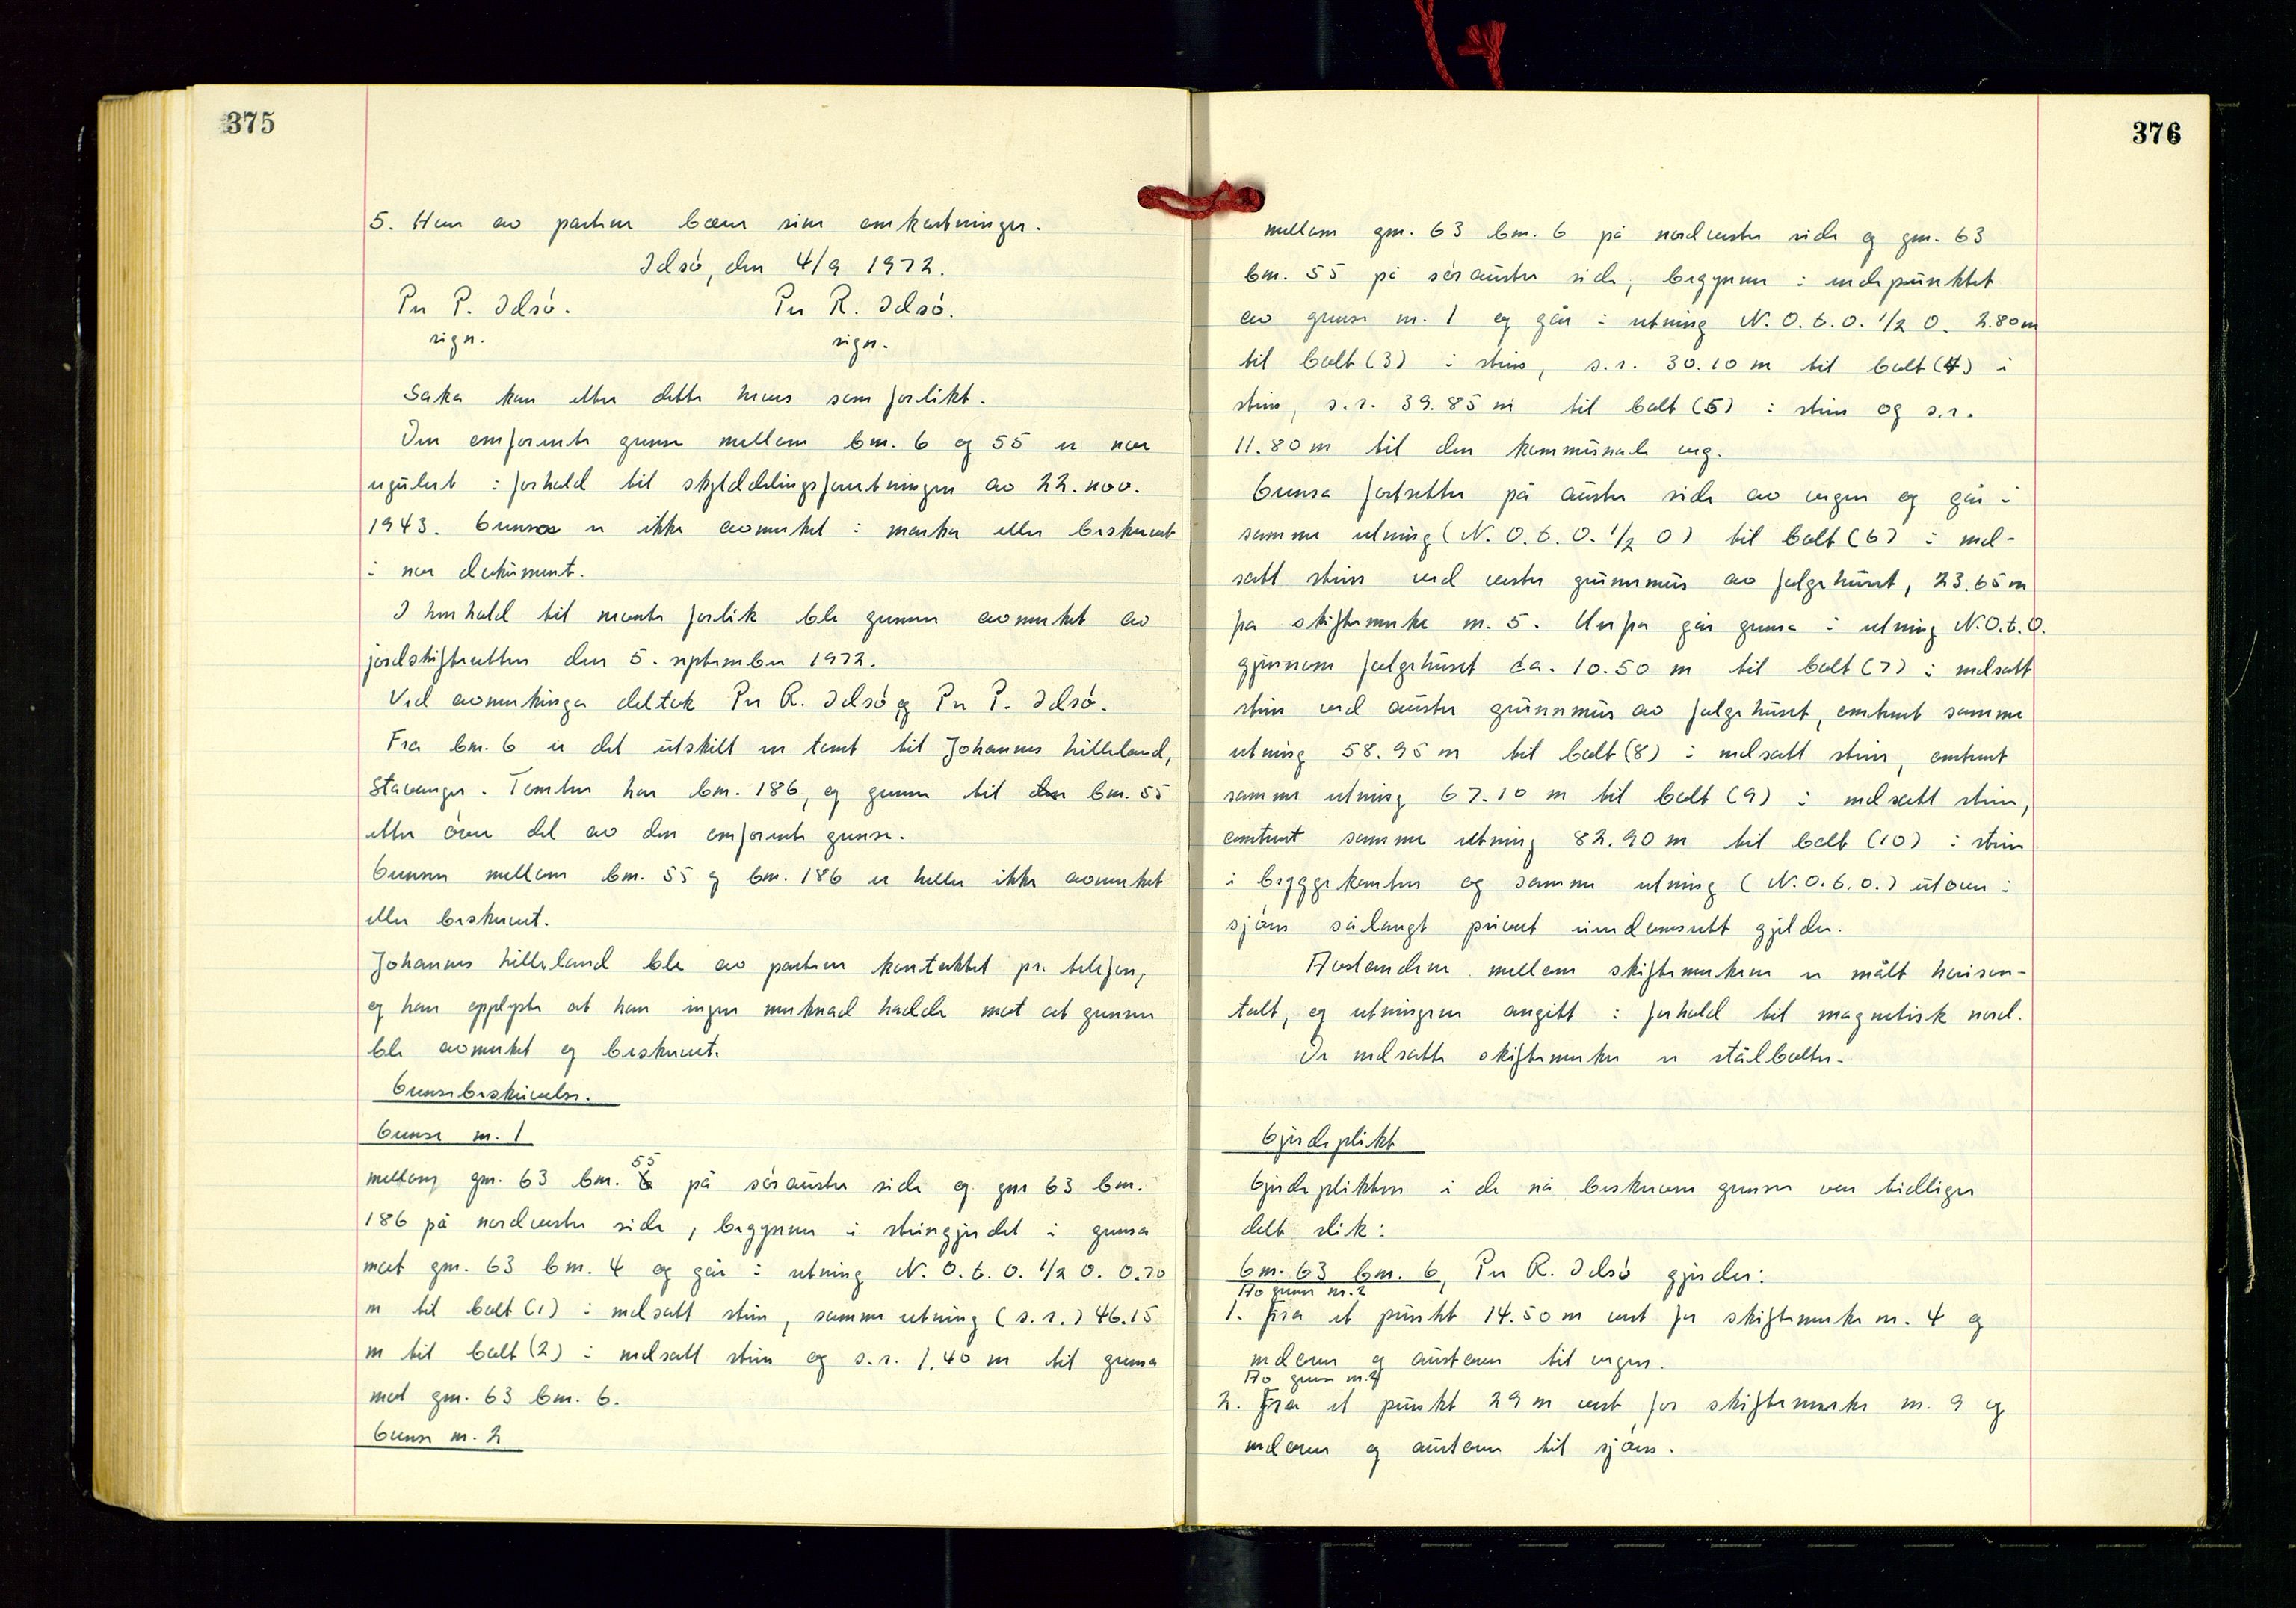 375
5. Hver av partene bærer sine omkostninger.
Idsø, den 4/9 1972.
Per P. Idsø. Per R. Idsø.
sign. sign.
Saka kan etter dette heves som forlikt.
Den omforente grense mellom bnr. 6 og 55 er noe
regulert i forhold til skylddelingsforretningen av 22. nov.
1943. Grensa er ikke avmerket i marka eller beskrevet
i noe dokument.
I henhold til nevnte forlik ble grensen avmerket av
jordskifteretten den 5. september 1972.
Ved avmerkinga deltok Per R. Idsø og Per P. Idsø.
Fra bnr. 6 er det utskilt en tomt til Johannes Hilleland,
Stavanger. Tomten har bnr. 186, og grense til bnr. 55
etter øvre del av den omforente grense.
Grensen mellom bnr. 55 og bnr. 186 er heller ikke avmerket
eller beskrevet.
Johannes Hilleland ble av partene kontaktet pr. telefon,
og han opplyste at han ingen merknad hadde mot at grensen
ble avmerket og beskrevet.
Grensebeskrivelse.
Grense nr. 1
mellom gnr. 63 bnr. 55 på søraustre side og gnr 63 bnr.
186 på nordvestre side, begynner i steingjerdet i grensa
mot gnr. 63 bnr. 4 og går i retning N. O. t. O. 1/2 O. 0.70
m til bolt (1) i nedsatt stein, samme retning (s.r.) 46.15
m til bolt (2) i nedsatt stein og s.r. 1,40 m til grensa
mot gnr. 63 bnr. 6.
Grense nr. 2
376
mellom gnr. 63 bnr. 6 på nordvestre side og gnr. 63
bnr. 55 på søraustre side, begynner i endepunktet
av grense nr. 1 og går i retning N. O. t. O. 1/2 O. 2.80 m
til bolt (3) i stein, s.r. 30.10 m til bolt (4) i
stein, s.r. 39.85 m til bolt (5) i stein og s.r.
11.80 m til den kommunale veg.
Grensa fortsetter på austre side av vegen og går i
samme retning (N. O. t. O. 1/2 O) til bolt (6) i ned-
satt stein ved vestre grunnmur av følgehuset, 23.65 m
fra skiftemerke nr. 5. Herfra går grensa i retning N.O.t.O.
gjennom følgehuset ca. 10.50 m til bolt (7) i nedsatt
stein ved austre grunnmur av følgehuset, omtrent samme
retning 58.95 m til bolt (8) i nedsatt stein, omtrent
samme retning 67.10 m til bolt (9) i nedsatt stein,
omtrent samme retning 82.90 m til bolt (10) i stein
i bryggekanten og samme retning (N.O.t.O.) utover i
sjøen sålangt privat eiendomsrett gjelder.
Avstandene mellom skiftemerkene er målt horison-
talt, og retningene angitt i forhold til magnetisk nord.
De nedsatte skiftemerker er stålbolter.
Gjerdeplikt
Gjerdeplikten i de nå beskrevne grenser var tidligere
delt slik:
Gnr. 63 bnr. 6, Per R. Idsø gjerder:
Av grense nr. 2
1. Fra et punkt 14.50 m vest for skiftemerke nr. 4 og
nedover og austover til vegen.
Av grense nr. 2
2. Fra et punkt 29 m vest for skiftemerke nr. 9 og
nedover og austover til sjøen.